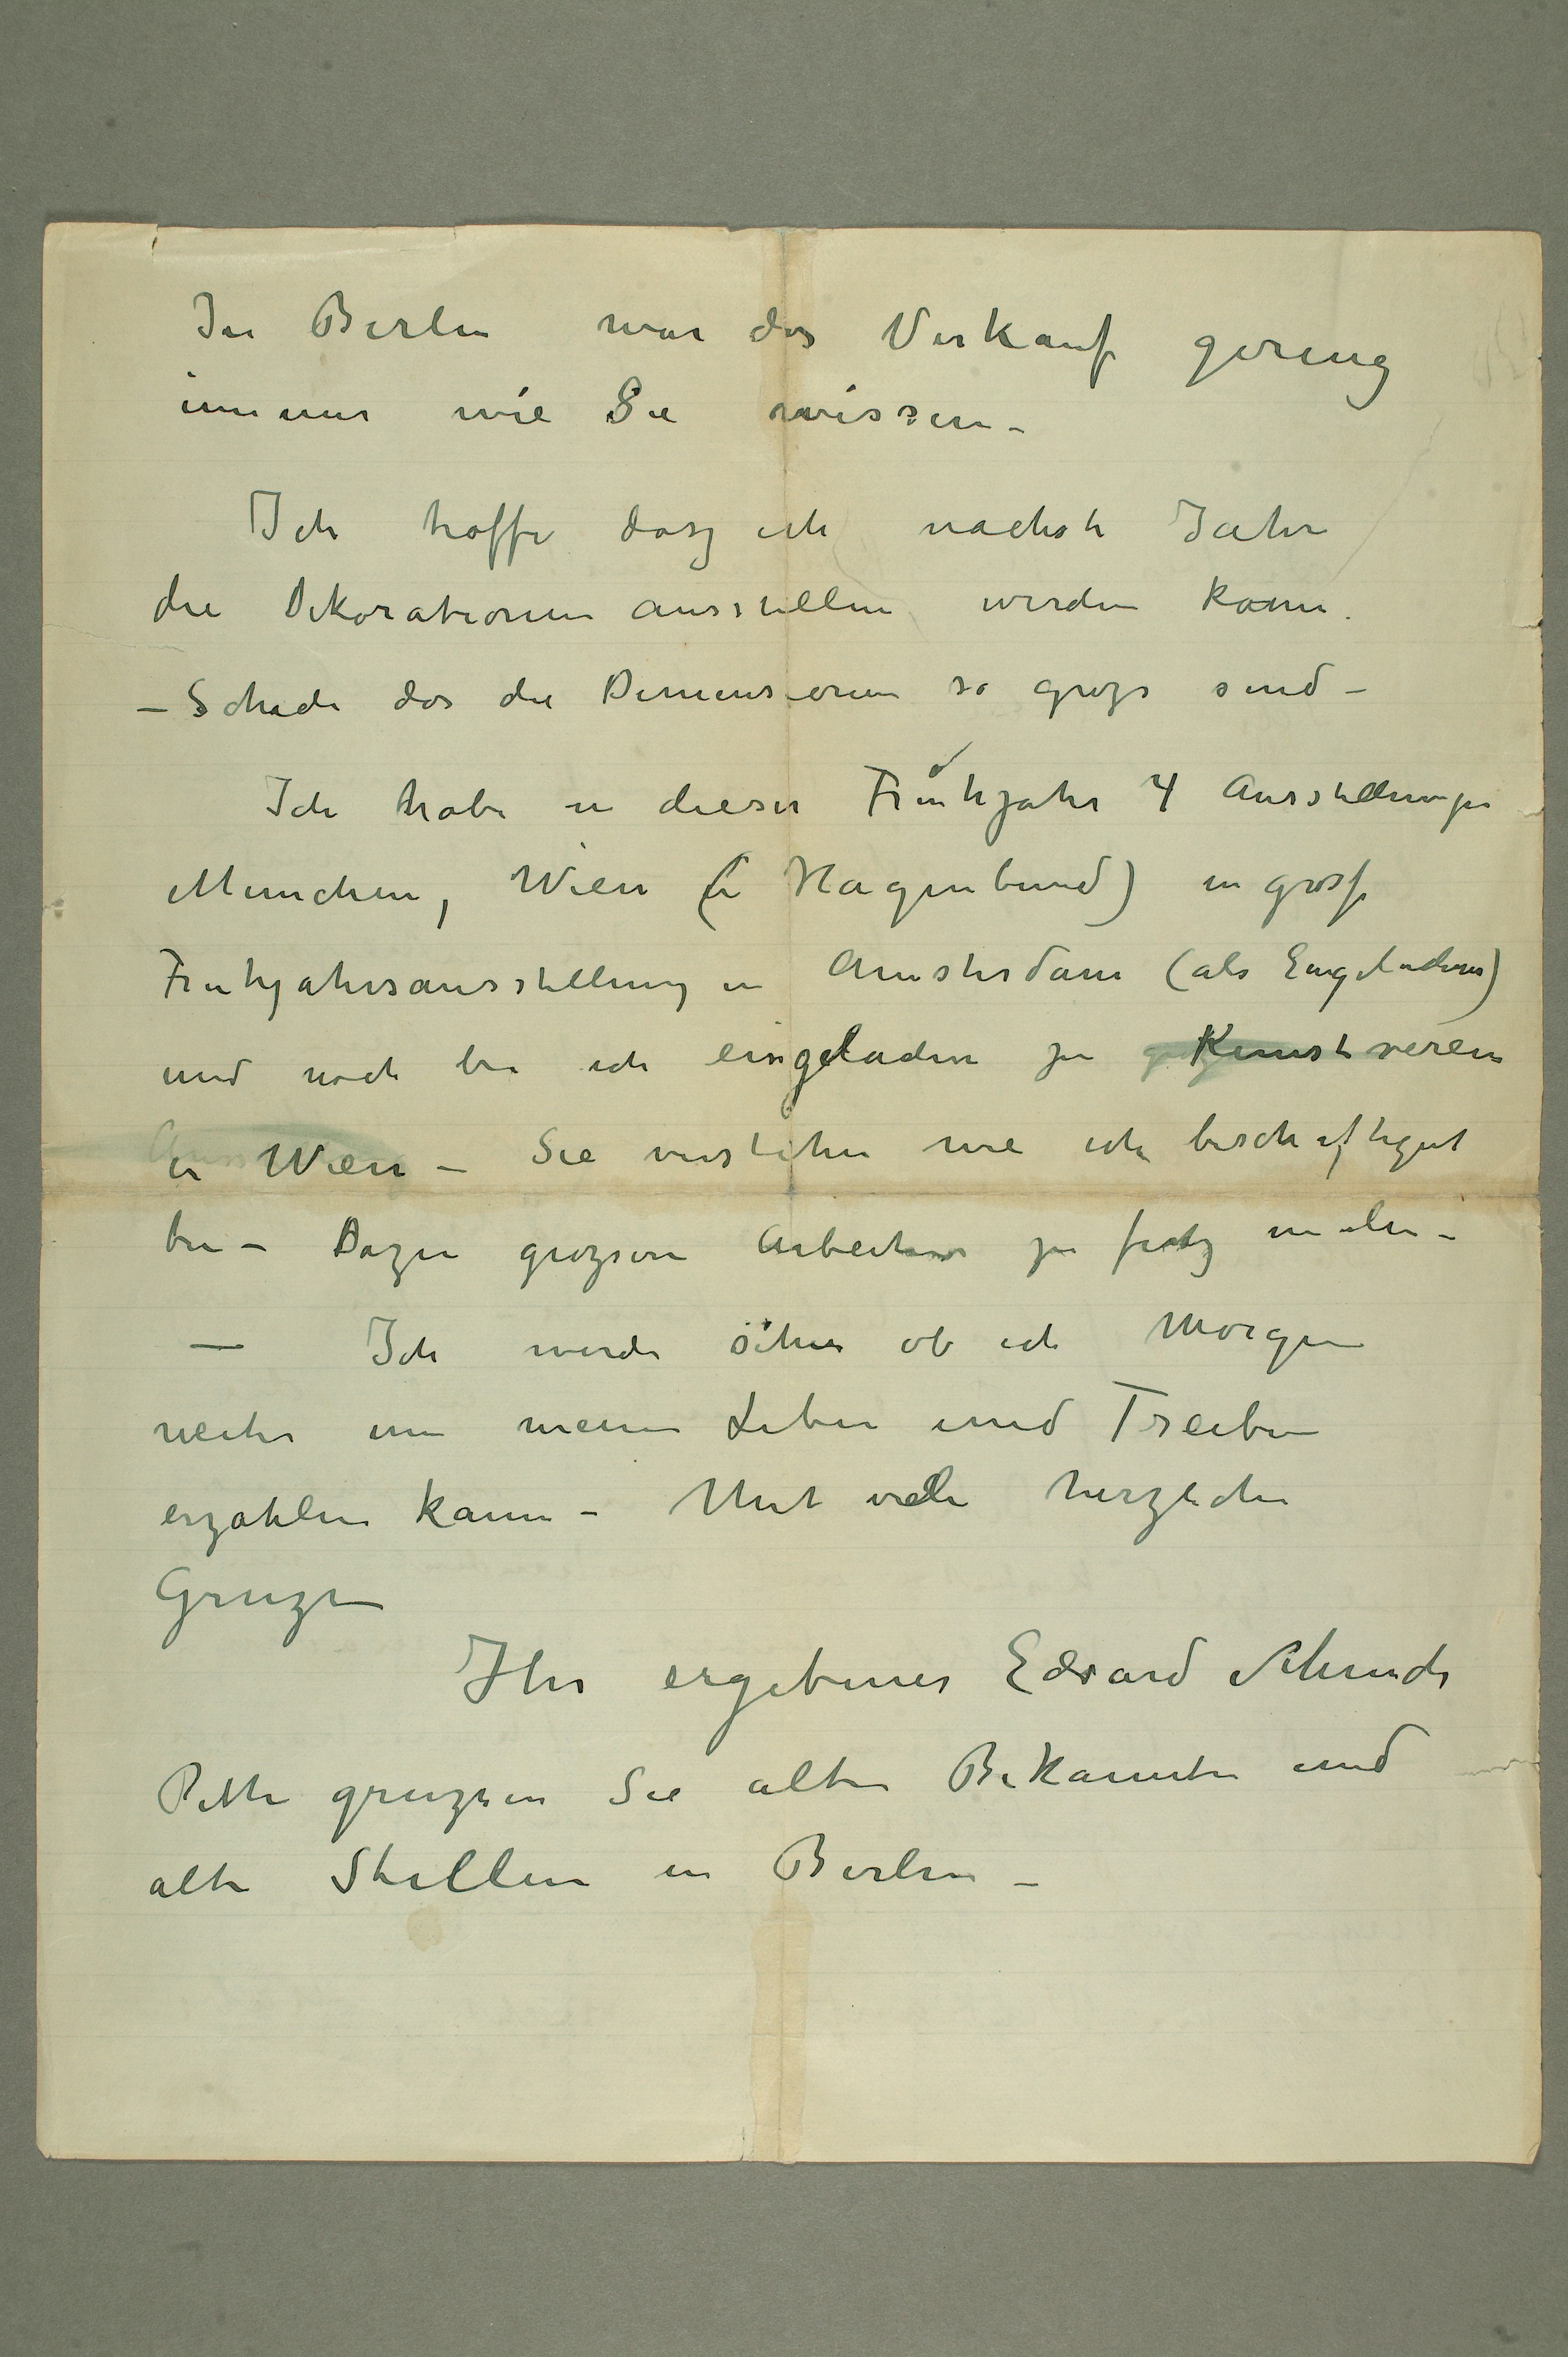 In Berlin war das Verkauf gering
immer wie Sie wissen –
Ich hoffe dasz ich nachste Jahr
die Dekorationen ausstellen werden kann.
– Schade das die Dimensionen so grozs sind –
Ich habe in dieser Fruhjahr 4 Ausstellungen
Munchen, Wien (in Hagenbund) in
Fruhjahrsausstellung in Amsterdam (als Eingeladener)
und noch bin ich eingeladen zu Kunstverein
in Wien – Sie verstehen wie ich beschaftiget
bin – Dazu grozsen Arbeiten zu malen –
– Ich werde sehen ob ich Morgen
weiter um meinen Leben und Treiben
erzahlen kann – Mit viele herzlichen
Gruzsen
Ihr ergebener Edvard Munch
Bitte gruzsen Sie alten Bekannten und
alte Stellen in Berlin –